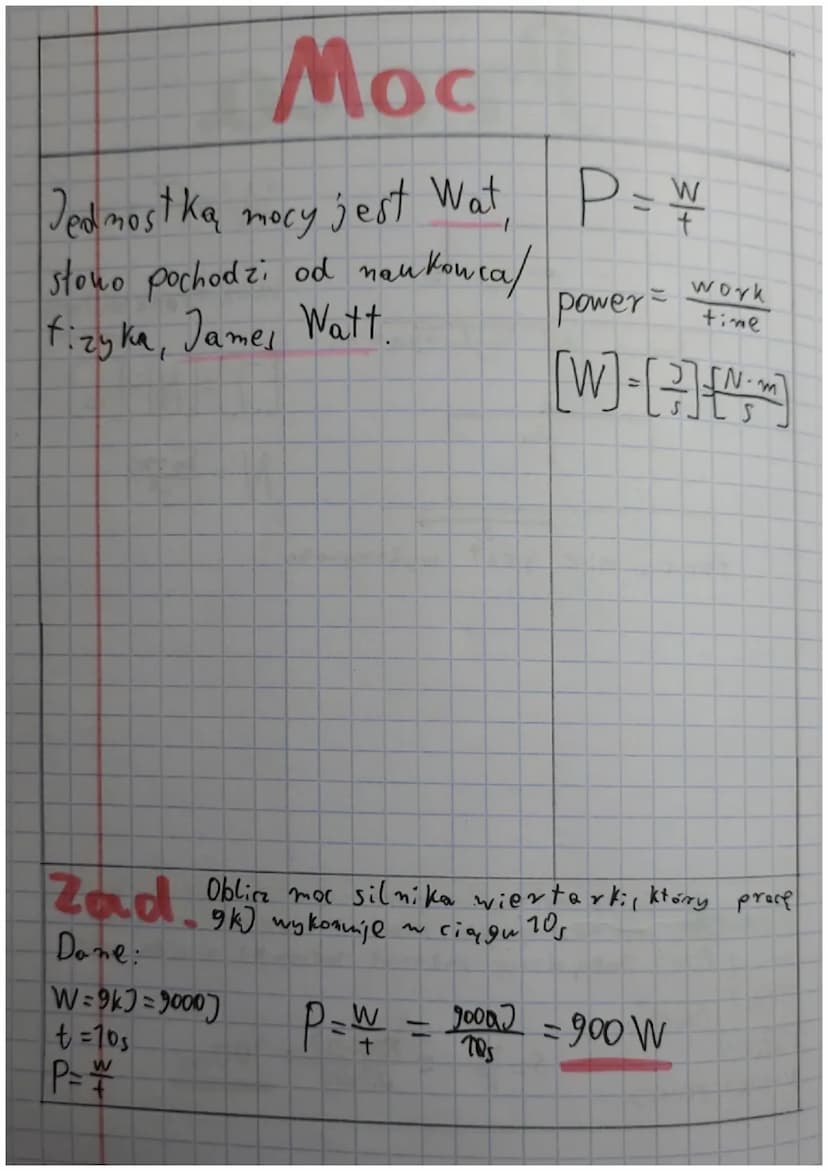 Moc
Jednostką mocy jest Wat,
słowo pochodzi od naukowca/
fizyka, James Watt.
P = W/t
power = work/time
[W] = [J/s] = [N·m/s]
Zad. Oblicz moc silnika wiertarki, który pracę
9kJ wykonuje w ciągu 10s
Dane:
W = 9kJ = 9000J
t = 10s
P = W/t
P = W/t = 9000J/10s = 900 W